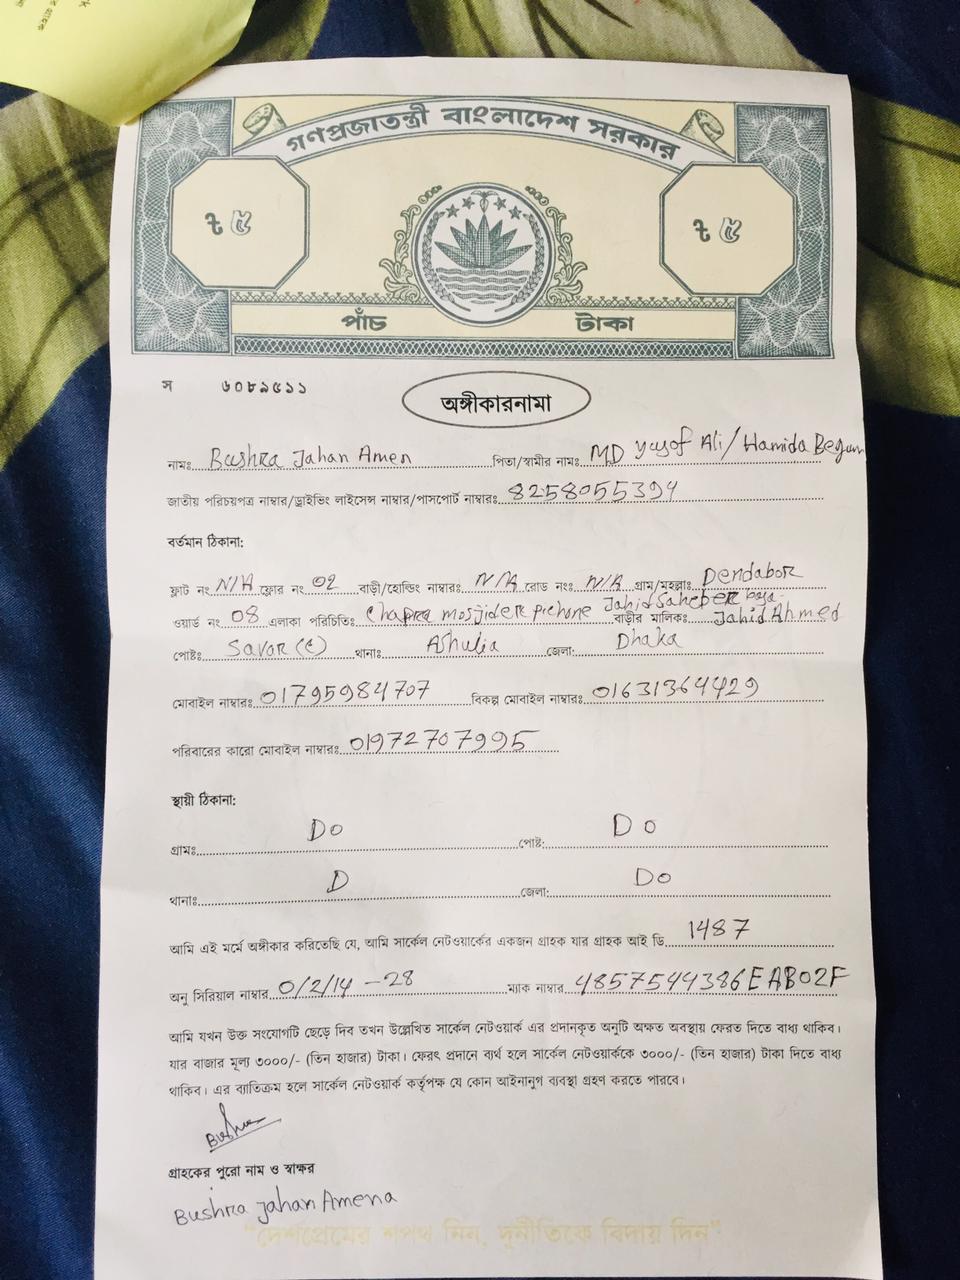 গণপ্রজাতন্ত্রী বাংলাদেশ সরকার
৳ ৫ ৳ ৫
পাঁচ টাকা
স ৬০৮৯৫১১
অঙ্গীকারনামা
নামঃ Bushra Jahan Amen পিতা/স্বামীর নামঃ MD Yusof Ali/Hamida Begum
জাতীয় পরিচয়পত্র নাম্বার/ড্রাইভিং লাইসেন্স নাম্বার/পাসপোর্ট নাম্বারঃ 8258055394
বর্তমান ঠিকানা:
ফ্লাট নং N/A ফ্লোর নং 02 বাড়ী/হোল্ডিং নাম্বারঃ N/A রোড নংঃ N/A গ্রাম/মহল্লাঃ Dendabor
ওয়ার্ড নং 08 এলাকা পরিচিতিঃ Chapra mosjider pichone Jahid Saheber বাড়ীর মালিকঃ Jahid Ahmed
পোষ্টঃ Savar থানাঃ Ashulia জেলা: Dhaka
মোবাইল নাম্বারঃ 01795984707 বিকল্প মোবাইল নাম্বারঃ 01631364429
পরিবারের কারো মোবাইল নাম্বারঃ 01972707995
স্থায়ী ঠিকানা:
গ্রামঃ Do পোষ্ট: Do
থানাঃ D জেলা: Do
আমি এই মর্মে অঙ্গীকার করিতেছি যে, আমি সার্কেল নেটওয়ার্কের একজন গ্রাহক যার গ্রাহক আই ডি 1487
অনু সিরিয়াল নাম্বার 0/2/14 -28 ম্যাক নাম্বার 4857544386EAB02F
আমি যখন উক্ত সংযোগটি ছেড়ে দিব তখন উল্লেখিত সার্কেল নেটওয়ার্ক এর প্রদানকৃত অনুটি অক্ষত অবস্থায় ফেরত দিতে বাধ্য থাকিব।
যার বাজার মূল্য ৩০০০/- (তিন হাজার) টাকা। ফেরৎ প্রদানে ব্যর্থ হলে সার্কেল নেটওয়ার্ককে ৩০০০/- (তিন হাজার) টাকা দিতে বাধ্য
থাকিব। এর ব্যতিক্রম হলে সার্কেল নেটওয়ার্ক কর্তৃপক্ষ যে কোন আইনানুগ ব্যবস্থা গ্রহণ করতে পারবে।
গ্রাহকের পুরো নাম ও স্বাক্ষর
Bushra Jahan Amena
"দেশপ্রেমের শপথ নিন, দুর্নীতিকে বিদায় দিন"